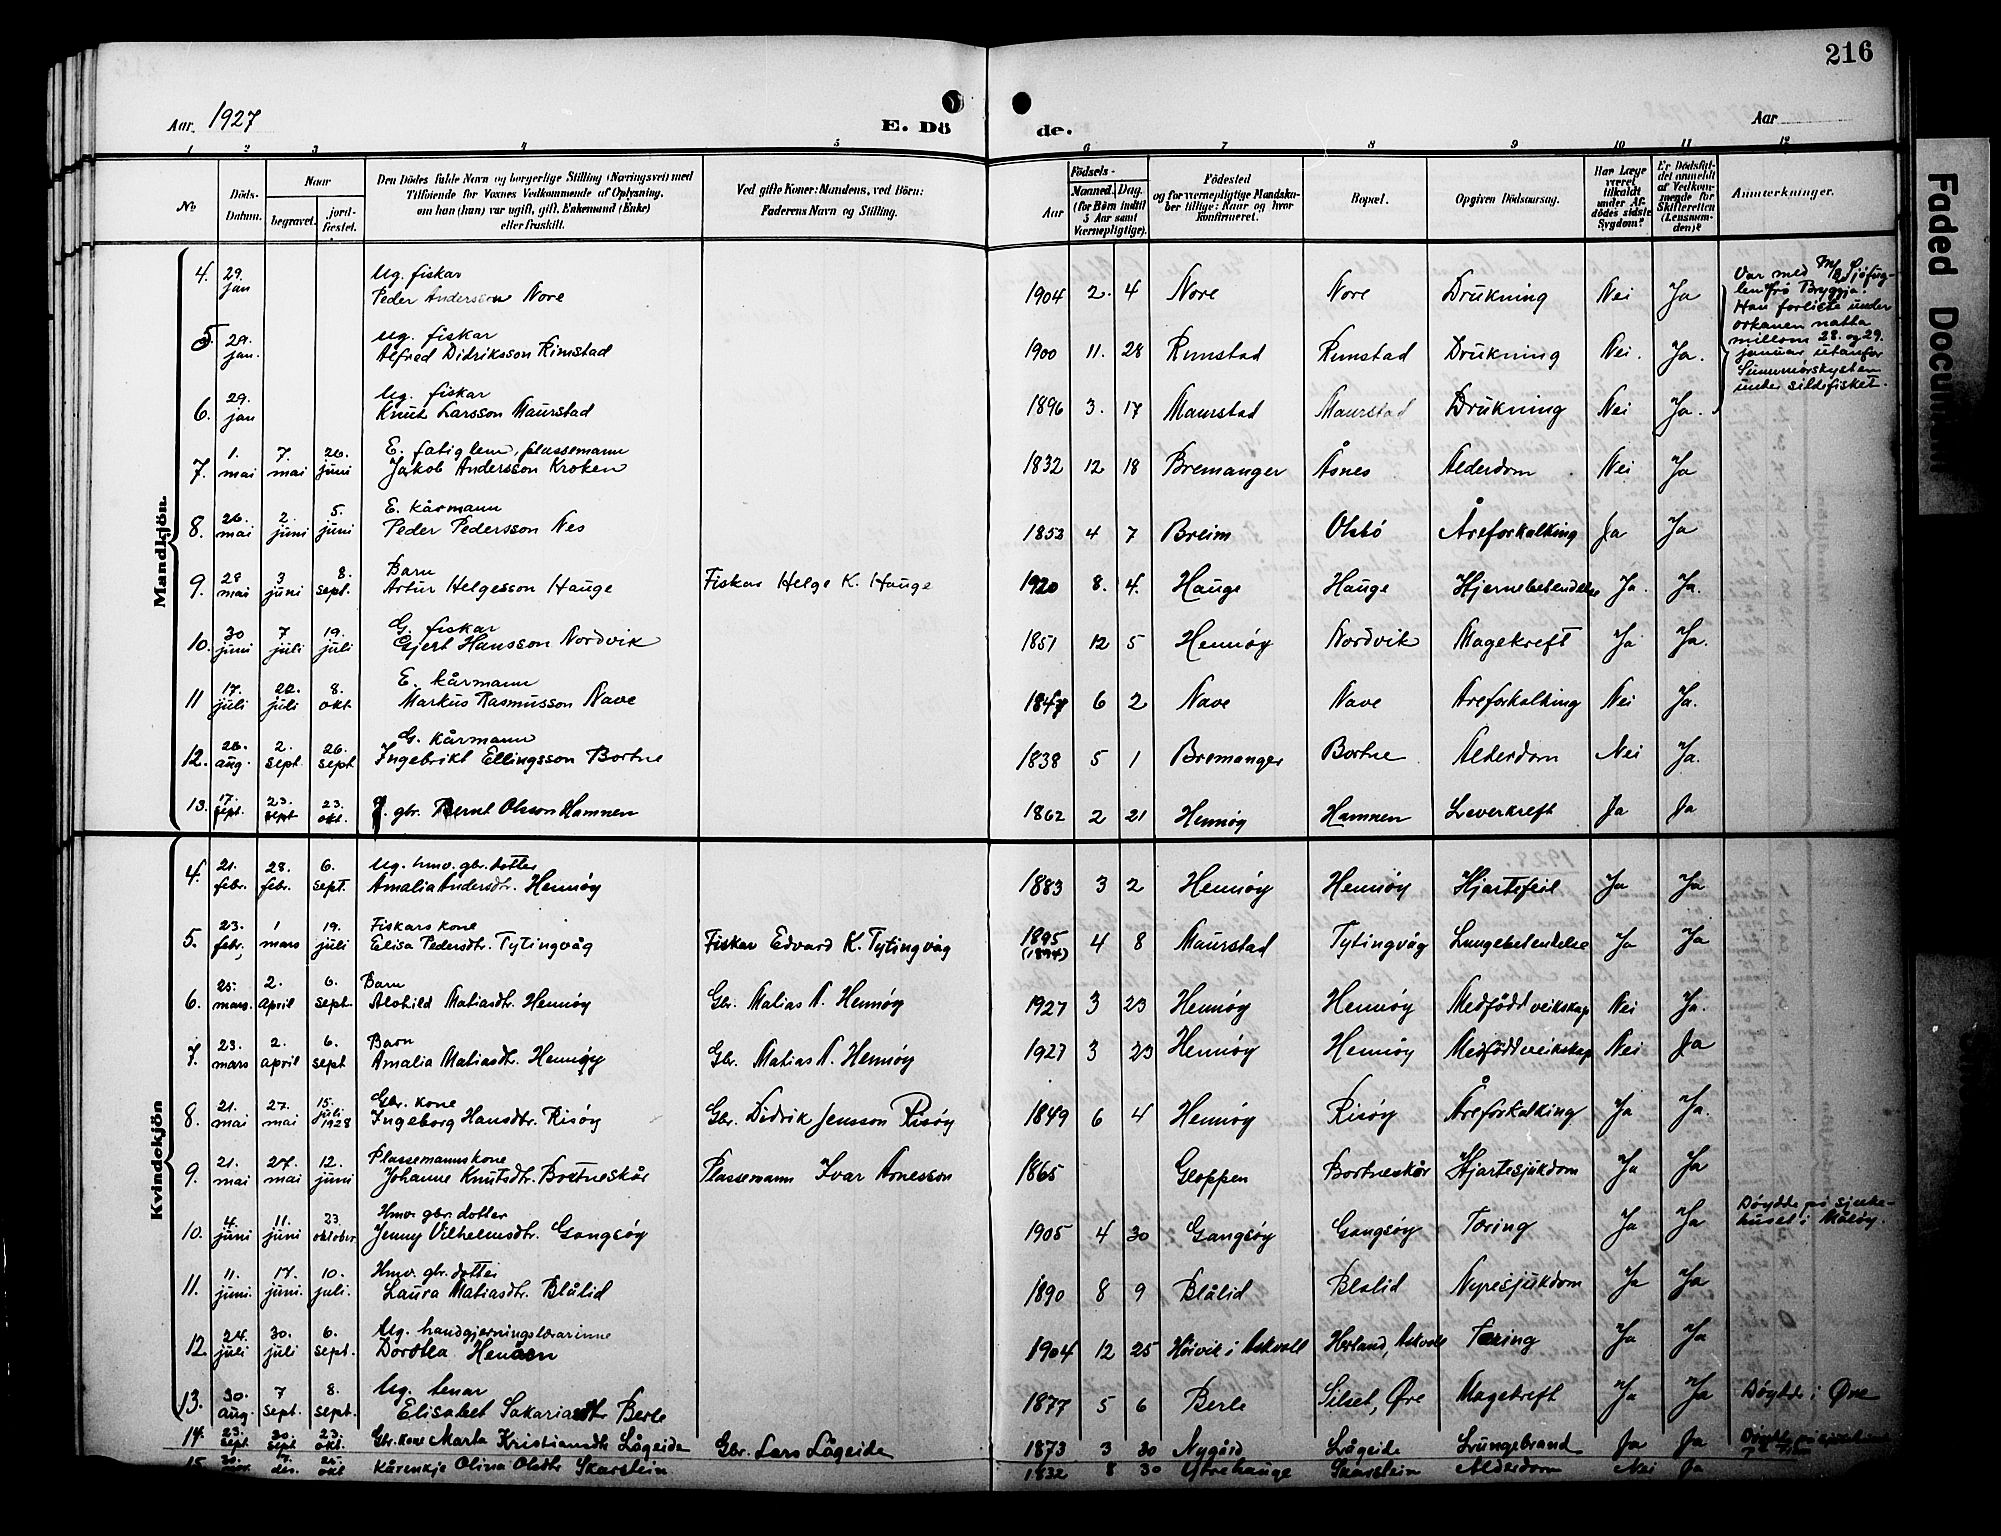 216
Aar 1927
E. Dö de.
Aar
1 2 3 4 5 6 7 8 9 10 11 12
No
Döds-Datum.
Naar
begravet.
jord-fæstet.
Den Dödes fulde Navn og borgerlige Stilling (Næringsvei) med
Tilföiende for Voxnes Vedkommende af Oplysning,
om han (hun) var ugift, gift, Enkemand (Enke)
eller fraskilt.
Ved gifte Koner: Mandens, ved Börn:
Faderens Navn og Stilling.
Födsels-
Aar
Maaned. Dag.
(for Börn indtil
5 Aar samt
Værnepligtige).
Födested
og for værnepligtige Mandska-
ber tillige: Naar og hvor
konfirmeret.
Bopæl.
Opgiven Dödsaarsag.
Har Læge
været
tilkaldt
under Af-
dödes sidste
Sygdom?
Er Dödsfal-
det anmeldt
af Vedkom-
mende for
Skifteretten
(Lensman-
den)?
Anmærkninger.
Mandkjön.
4. 29. jan Ug. fiskar
Peder Anderssen Nore 1904 2. 4 Nore Nore Drukning Nei Ja
Var med M/K Sjöfug-
len frå Bryggja.
Han forliste under
orkanen natta
millom 28. og 29.
januar utanfor
Sunnmørskysten
under sildefisket.
5. 29. jan. Ug. fiskar
Alfred Didriksson Rimstad 1900 11. 28 Rimstad Rimstad Drukning Nei. Ja.
6. 29. jan Ug. fiskar
Knut Larsson Maurstad 1896 3. 17 Maurstad Maurstad Drukning Nei Ja.
7. 1. mai 7. mai 26. juni E. fatiglem, plassemann
Jakob Andersson Kroken 1832 12 18 Bremanger Åsnes Alderdom Nei Ja
8. 26. mai 2. juni 5. juni E. Kårmann
Peder Pedersson Nes 1853 4 7 Breim Olsbö Åreforkalking Ja Ja
9. 28 mai 3 juni 8. sept. Barn
Artur Helgesson Hauge Fiskar Helge K. Hauge 1920 8. 4. Hauge Hauge Hjernebetendelse Ja. Ja.
10. 30 juni 7 juli 19. juli G. fiskar
Gjert Hansson Nordvik 1851 12 5 Hennöy Nordvik Magekreft Ja Ja.
11 17. juli 22. juli 8. okt E. kårmann
Markus Rasmusson Nave 1847 6 2 Nave Nave Åreforkalking Nei Ja.
12. 26. aug. 2. sept. 26. sept G. Kårmann
Ingebrikt Ellingsson Bortne 1838 5 1 Bremanger Bortne Alderdom Nei Ja.
13. 17. sept. 23. sept 23. okt. gbr. Bernt Olsson Hamnen 1862 2 21 Hennöy Hamnen Leverkreft Ja Ja
Kvindekjön
4. 21. febr. 28. febr. 6. sept. Ug. hmv. gbr. dotter
Amalia Andersdtr. Hennöy 1883 3 2 Hennöy Hennöy Hjartefeil Ja Ja
5. 23. febr. 1 mars 19. juli Fiskars kone
Elisa Pedersdtr. Tytingvåg Fiskar Edvard K. Tytingvåg 1895 (1894) 4 8 Maurstad Tytingvåg Lungebetendelse Ja Ja
6. 25. mars. 2. april 6. sept Barn
Alvhild Matiasdtr. Hennöy Gbr. Matias A. Hennöy 1927 3 23 Hennöy Hennöy Medfödd veikskap Nei Ja.
7 23. mars 2. april 6. sept Barn
Amalia Matiasdtr. Hennöy Gbr. Matias A. Hennöy 1927 3 23 Hennöy Hennöy Medfödd veikskap Nei Ja
8. 21. mai 27. mai 15. juli 1928 Gbr. kone
Ingeborg Hansdtr. Risöy Gbr. Didrik Jensson Risöy 1849 6 4 Hennöy Risöy Åreforkalking Ja Ja.
9. 21. mai 27. mai 12. juni Plassemannskone
Johanne Knutsdtr. Bortneskår Plassemann Ivar Arnesson 1865 Gloppen Bortneskår Hjartesjukdom Ja Ja
10. 4. juni 11. juni 23. oktober Hmv. gbr. dotter
Jenny Vilhelmsdtr. Gangsöy 1905 4 30 Gangsöy Gangsöy Tæring Ja Ja Döydde på sjuke-
huset i Måløy.
11. 11. juni. 17. juni. 10. juli. Hmv. gbr. dotter
Laura Matiasdtr. Blålid 1890 8 9 Blålid Blålid Nyresjukdom Ja Ja
12. 24. juli 30. juli 6. sept. Ug. handgjerningslærarinne
Dorthea Henåen 1904 12 25 Höivik i Askvoll Herland, Askvoll Tæring Ja Ja
13. 30. aug. 7 sept. 8. sept. Ug. tenar
Elisabet Sakariasdtr Berle 1877 5 6 Berle Silset, Øre Magekreft Ja Ja Döydde i Øre
14. 23. sept 30. sept 23. okt. Gbr. kone Marta Kristiansdtr Lågeide Gbr. Lars Lågeide 1873 3 30 Nygård Lågeide Lungebrand Ja Ja
15. des. okt Kårenkje Olina Olsdtr Skarstein 1832 8 30 Ytrehauge Skarstein Alderdom Nei Ja
Faded Document